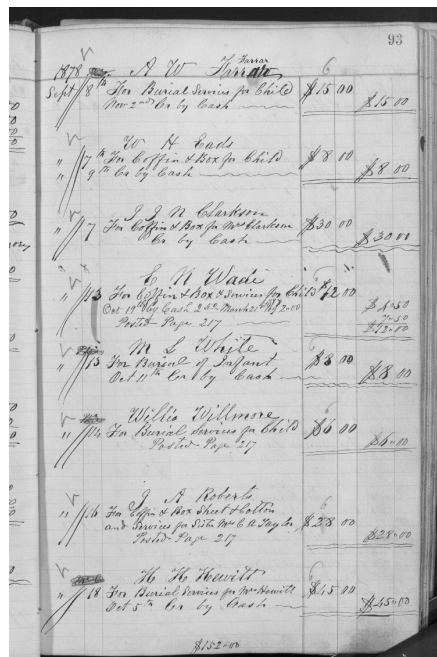 93
1878 A W Farrar
Sept 8th For Burial Services for Child $15 00
Nov 2nd Cr by Cash $15.00
W H Eads
" 7th For Coffin & Box for Child $8 00
" 9th Cr by Cash $8.00
J J N Clarkson
" 7 For Coffin & Box for Mrs Clarkson $30 00
Cr by Cash $30.00
C N Wade
" 13 For Coffin & Box & Services for Child $12 00
Oct 19th by Cash 2.50 March 21st 2.00 $4.50
Posted Page 217 7.50
$12.00
M L White
" 13 For Burial of Infant $8 00
Oct 11th Cr by Cash $8.00
Willis Willmore
" 14 For Burial Services for Child $6 00
Posted Page 217 $6.00
J A Roberts
" 16 For Coffin & Box Sheet & Cotton
and Services for Sister Mrs C A Taylor $28 00
Posted Page 217 $28.00
H H Hewitt
" 18 For Burial Services for Mrs Hewitt $45 00
Oct 5th Cr by Cash $45.00
$152.00